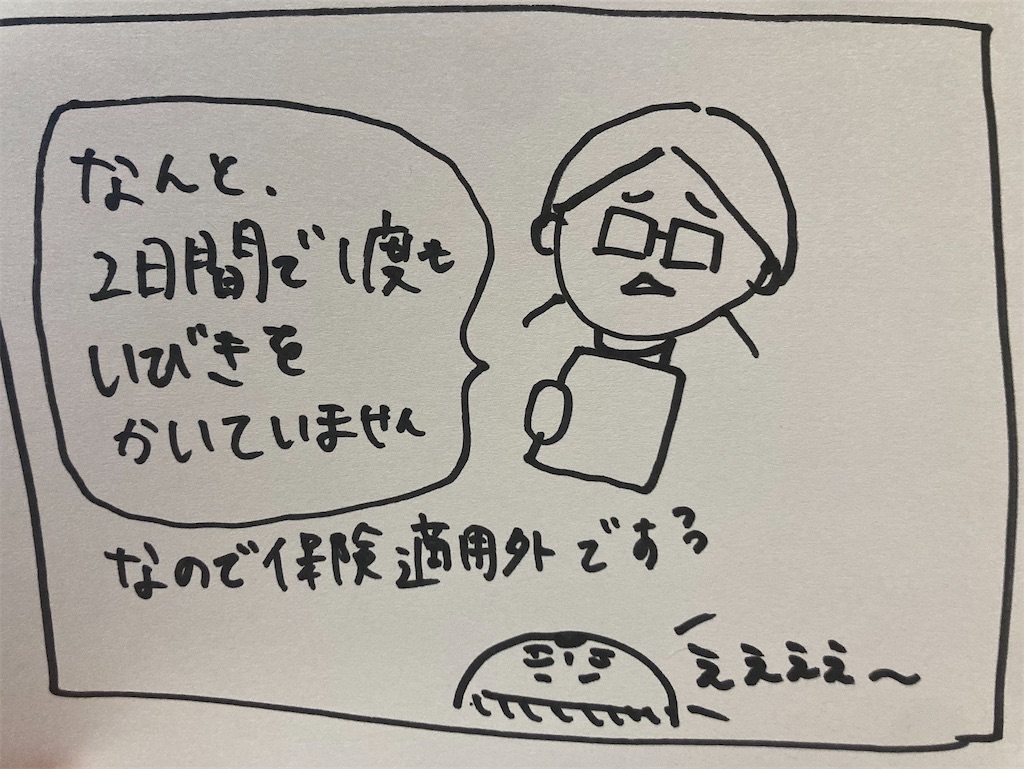 なんと、
2日間で1度も
いびきを
かいていません
なので保険適用外ですぅぅ
ええええ〜